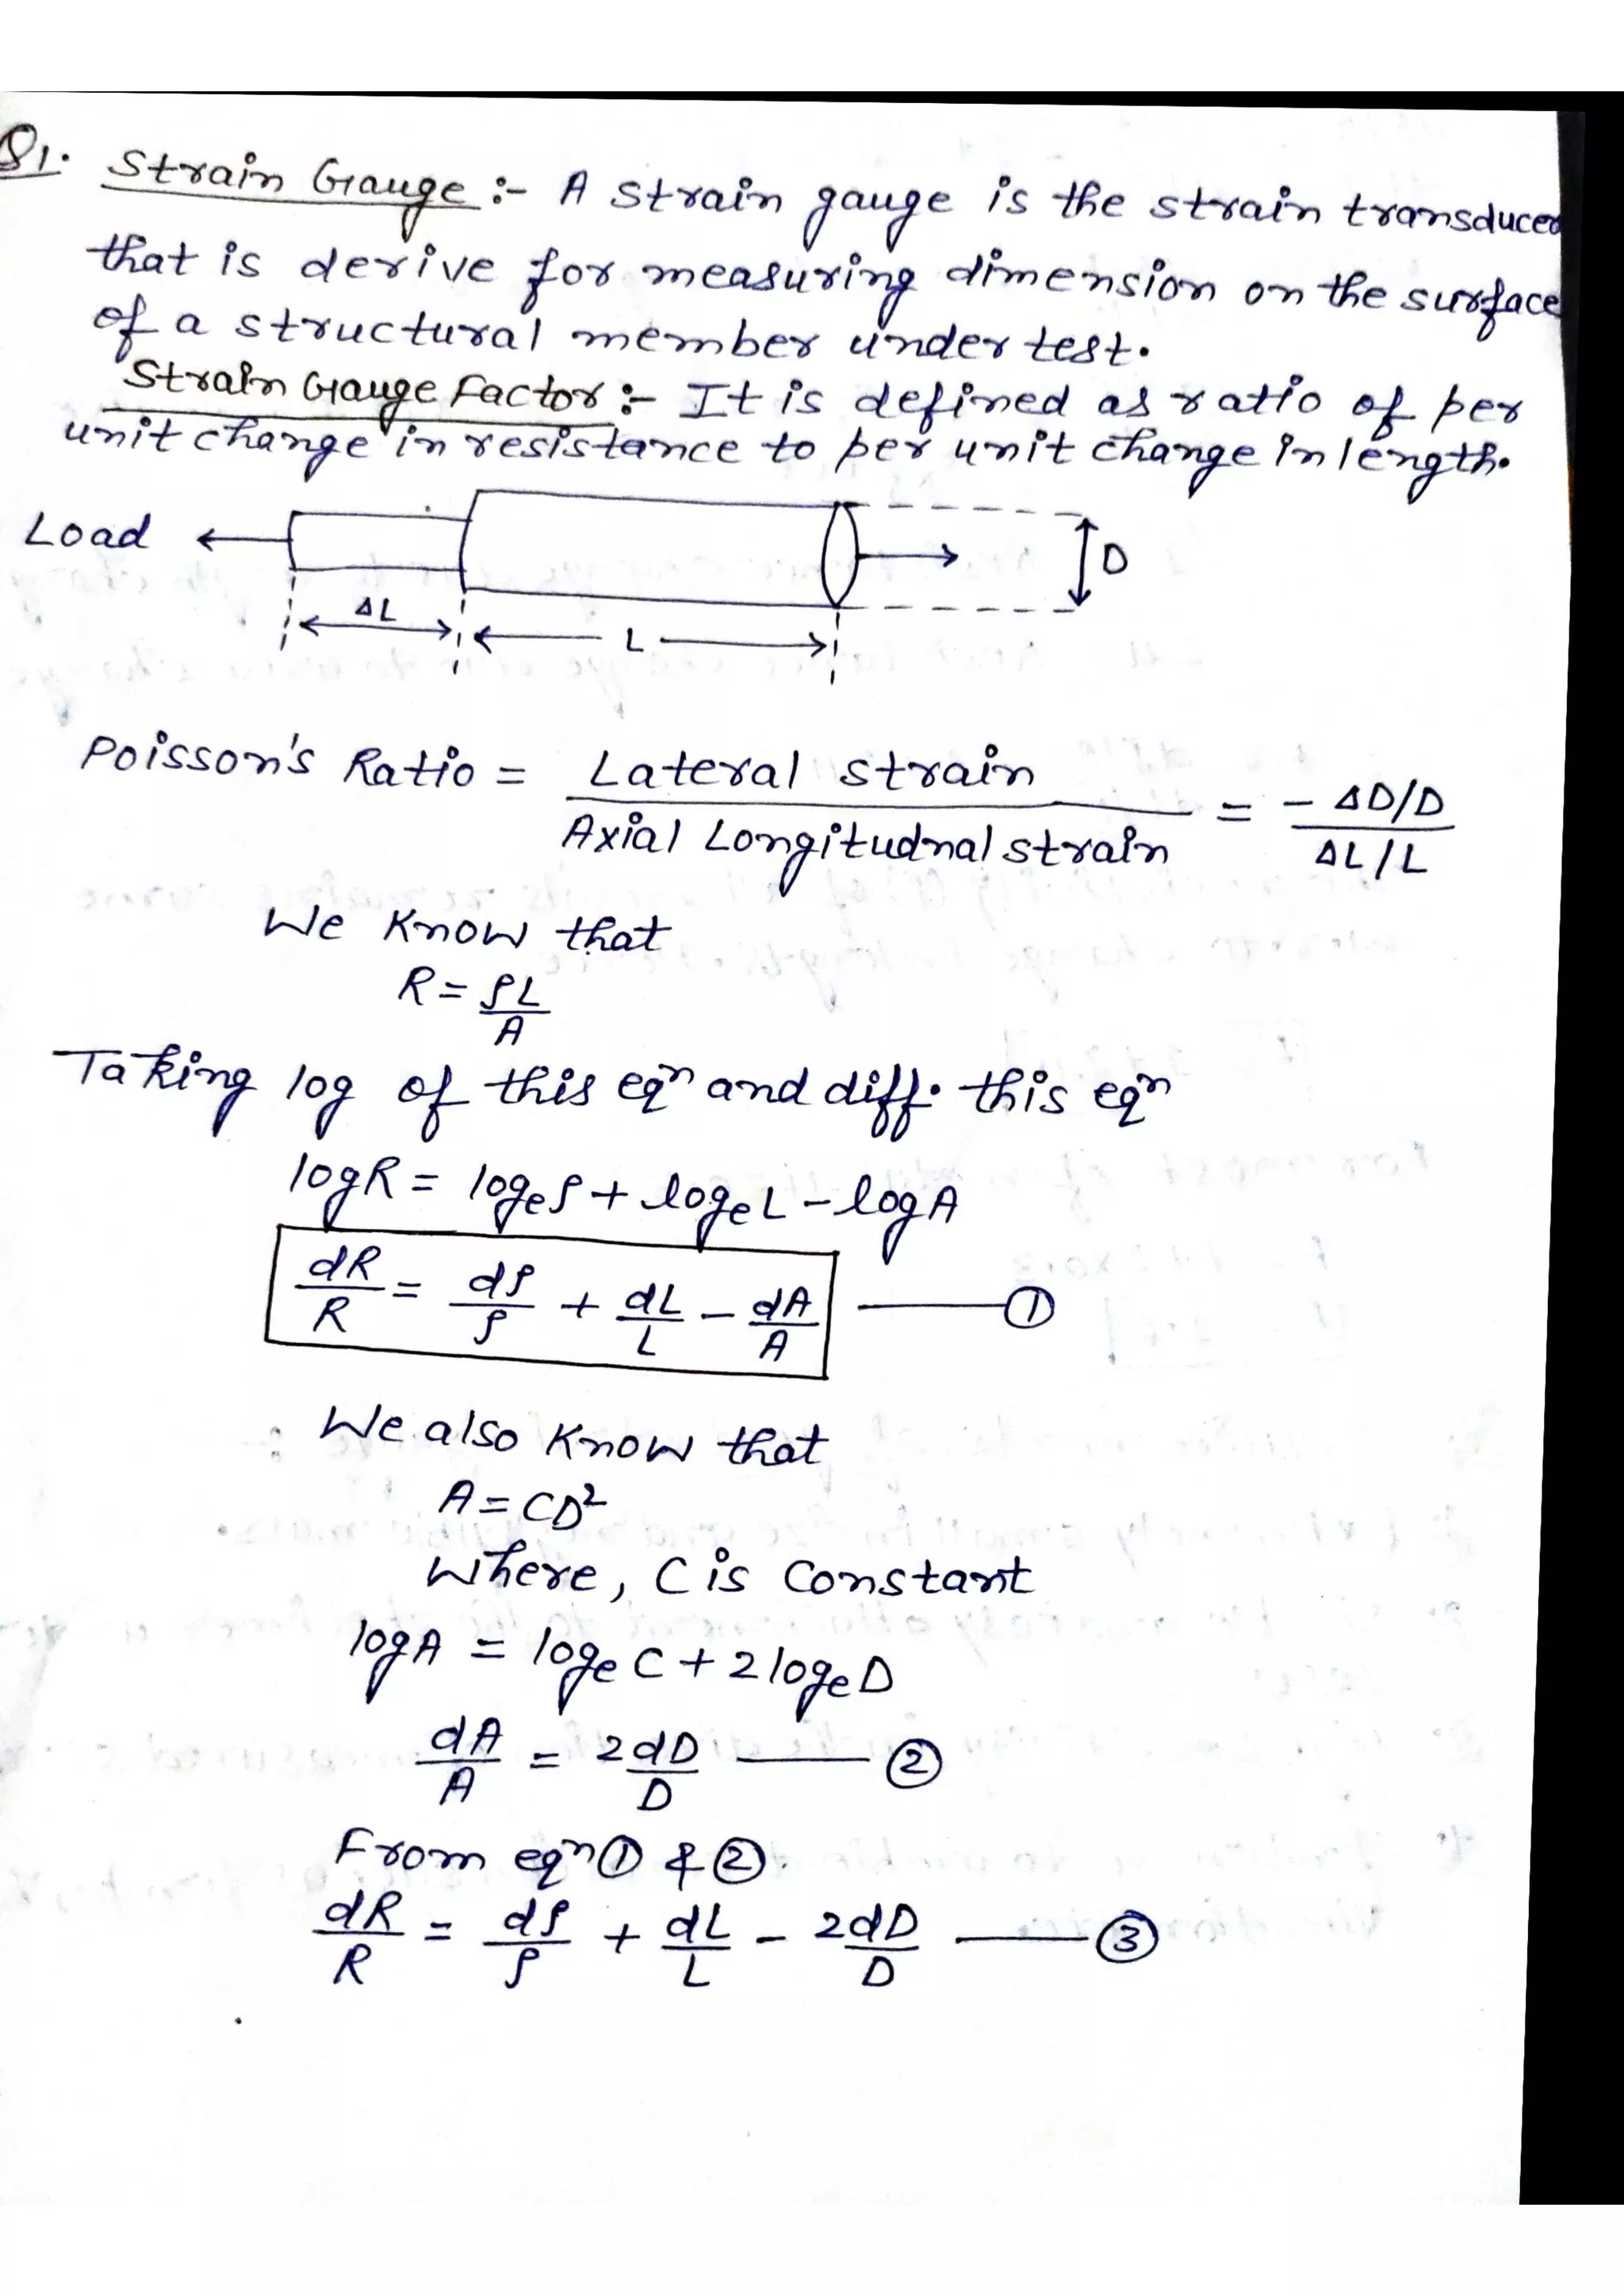 Q1. Strain Gauge :- A strain gauge is the strain transducer
that is derive for measuring dimension on the surface
of a structural member under test.
Strain Gauge Factor :- It is defined as ratio of per
unit change in resistance to per unit change in length.
Load D
ΔL L
Poisson's Ratio = Lateral strain / Axial Longitudnal strain = - ΔD/D / ΔL/L
We Know that
R = ρL/A
Taking log of this eqn and diff. this eqn
logR = logeρ + logeL - logA
dR/R = dρ/ρ + dL/L - dA/A — ①
We also Know that
A = CD²
Where, C is Constant
logA = loge C + 2 logeD
dA/A = 2dD/D — ②
From eqn ① & ②
dR/R = dρ/ρ + dL/L - 2dD/D — ③